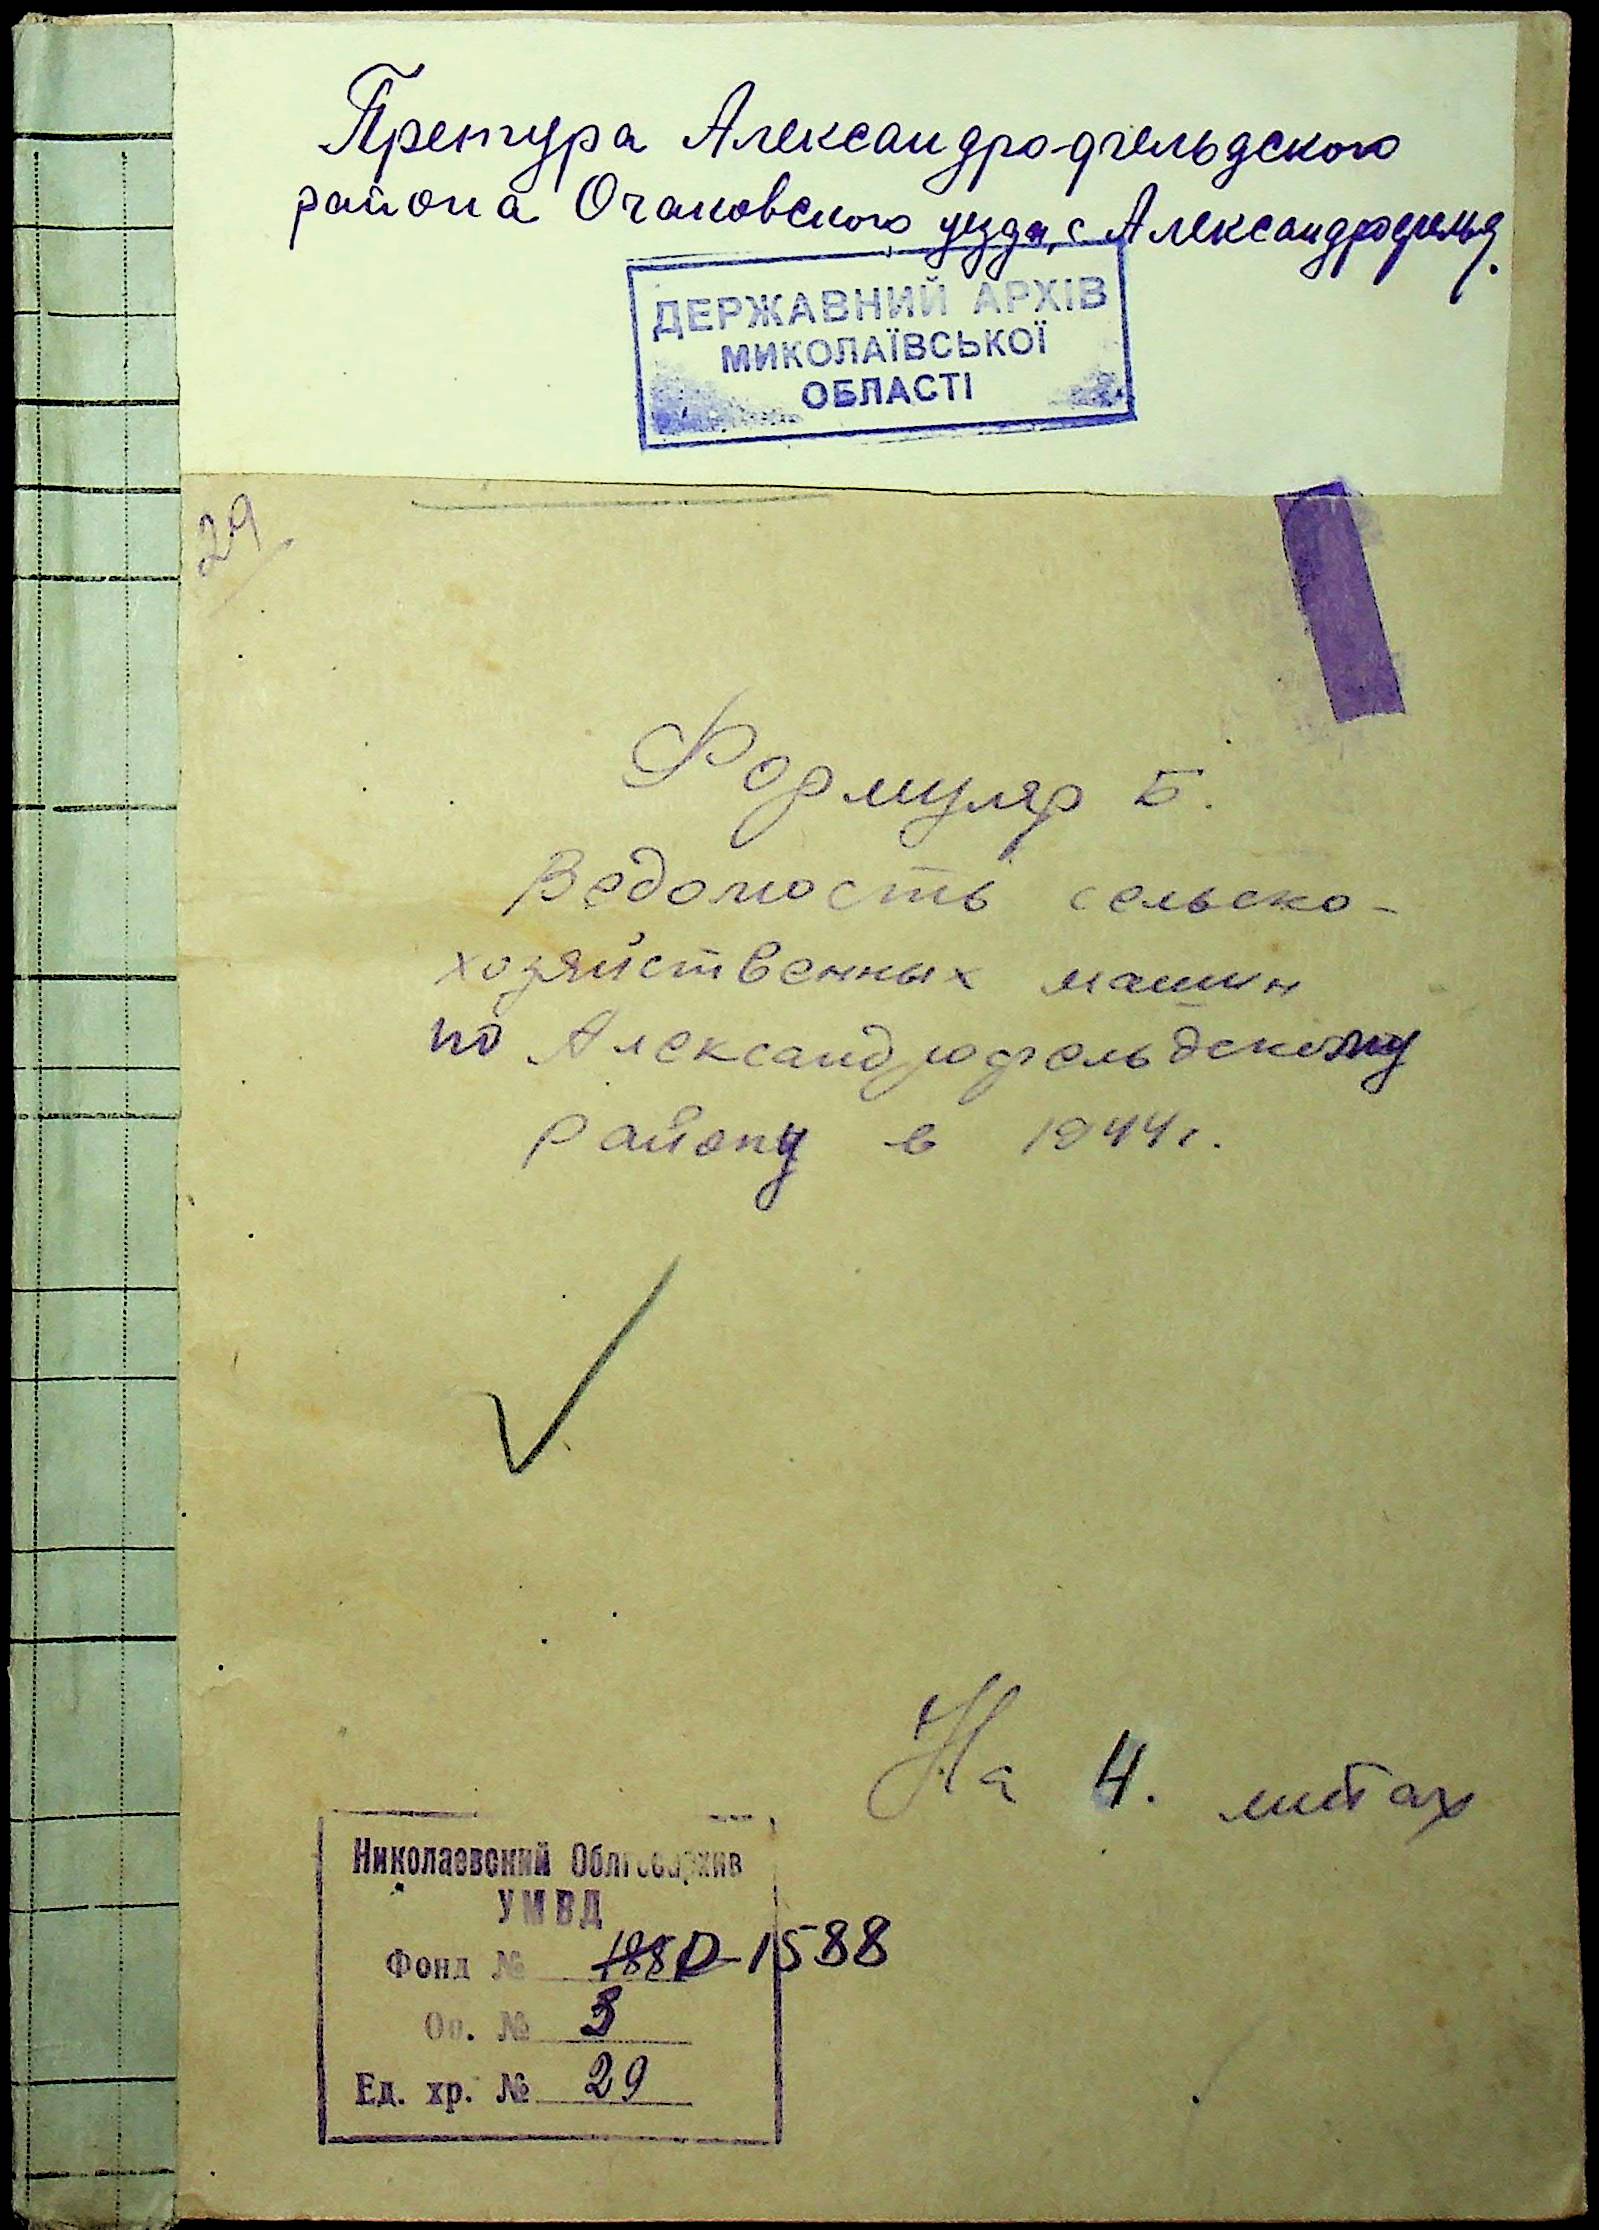 Претура Александро-фельдского
района Очаковского уезда, с Александрофельд.
ДЕРЖАВНИЙ АРХІВ
МИКОЛАЇВСЬКОЇ
ОБЛАСТІ
29
Формуляр Б.
Ведомость сельско-
хозяйственных машин
по Александрофельдскому
району в 1944г.
На 4. листах
Николаевский Облгосархив
УМВД
Фонд № 188 Р-1588
Оп. № 3
Ед. хр. № 29